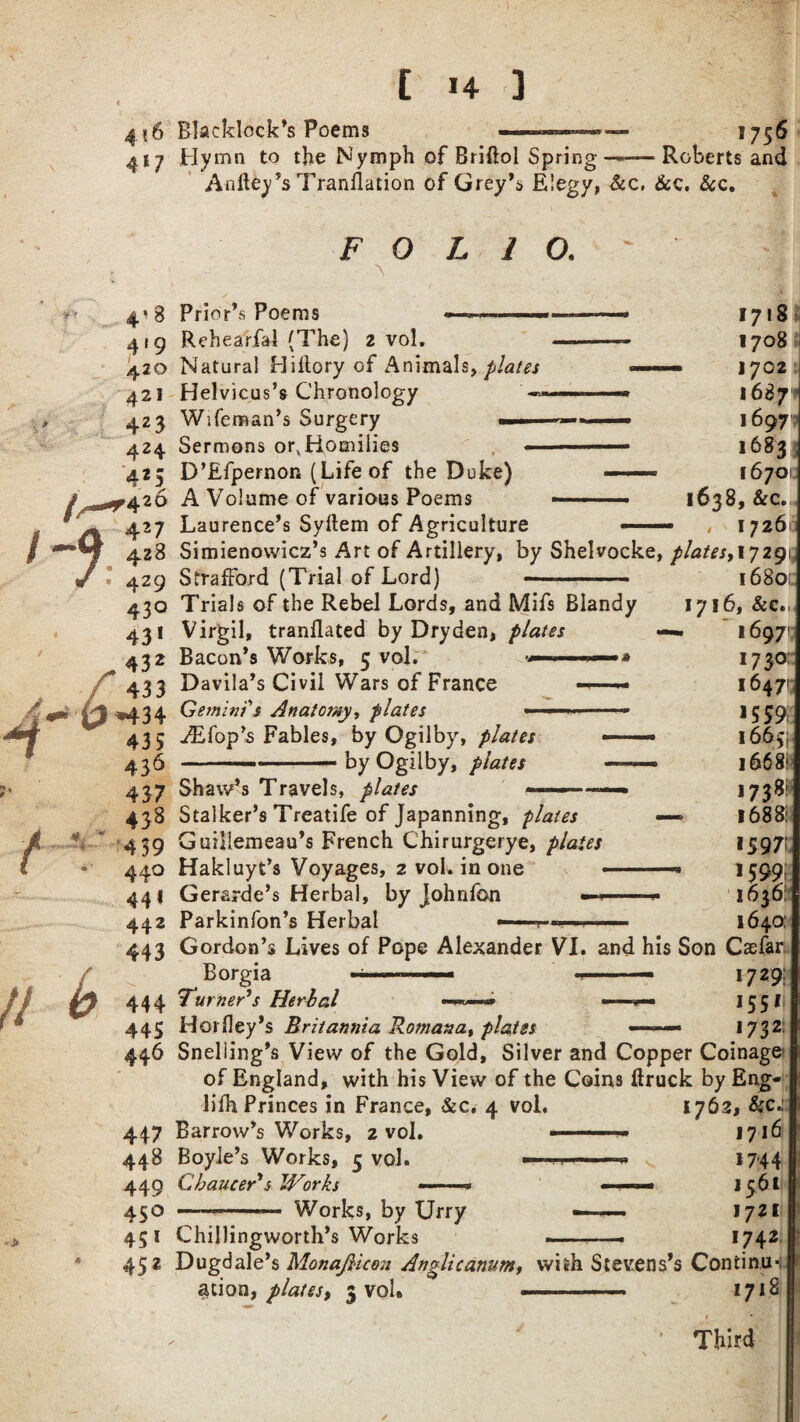 [ 14 ]
416 Blacklock's Poems —— 1756
417 Hymn to the Nymph of Briſtol Spring —— Roberts and
Anſtey's Tranſlation of Grey's Elegy, &c. &c. &c.
FOLIO.
418 Prior's Poems —— 1718
419 Rehearſal (The) 2 vol. —— 1708
420 Natural Hiſtory of Animals, plates —— 1702
421 Helvicus's Chronology —— 1687
423 Wiſeman's Surgery —— 1697
424 Sermons or Homilies —— 1683
425 D'Eſpernon (Life of the Duke) —— 1670
1 426 A Volume of various Poems —— 1638, &c.
427 Laurence's Syſtem of Agriculture —— 1726
1-9 428 Simienowicz's Art of Artillery, by Shelvocke, plates, 1729
429 Strafford (Trial of Lord) —— 1680
430 Trials of the Rebel Lords, and Miſs Blandy 1716, &c.
431 Virgil, tranſlated by Dryden, plates — 1697
432 Bacon's Works, 5 vol. —— 1730
433 Davila's Civil Wars of France —— 1647
4-6 434 Gemini's Anatomy, plates —— 1559
435 Æſop's Fables, by Ogilby, plates —— 1665
436 —— by Ogilby, plates —— 1668
437 Shaw's Travels, plates —— 1738
438 Stalker's Treatiſe of Japanning, plates — 1688
439 Guillemeau's French Chirurgerye, plates 1597
440 Hakluyt's Voyages, 2 vol. in one —— 1599
441 Gerarde's Herbal, by Johnſon —— 1636
442 Parkinſon's Herbal —— 1640
443 Gordon's Lives of Pope Alexander VI. and his Son Cæſar
Borgia —— —— 1729
11 6 444 Turner's Herbal —— —— 1551
445 Horſley's Britannia Romana, plates —— 1732
446 Snelling's View of the Gold, Silver and Copper Coinage
of England, with his View of the Coins ſtruck by Eng-
liſh Princes in France, &c. 4 vol. 1762, &c.
447 Barrow's Works, 2 vol. —— 1716
448 Boyle's Works, 5 vol. —— 1744
449 Chaucer's Works —— —— 1561
450 —— Works, by Urry —— 1721
451 Chillingworth's Works —— 1742
452 Dugdale's Monaſticon Anglicanum, with Stevens's Continu-
ation, plates, 3 vol. —— 1718
Third